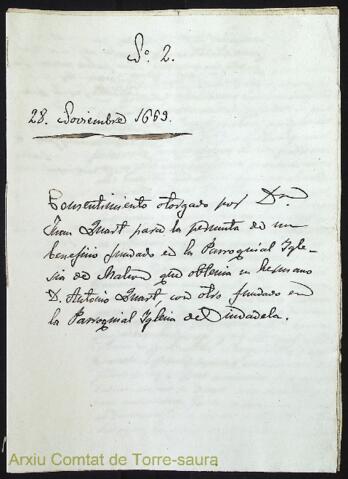 Nº 2.
28. Noviembre 1669.
Consentimiento otorgado por Dn
Juan Quart para la permuta de un
beneficio fundado en la Parroquial Igle-
sia de Mahon que obtenia su hermano
D. Antonio Quart, con otro fundado en
la Parroquial Iglesia de Ciudadela.
Arxiu Comtat de Torre-saura